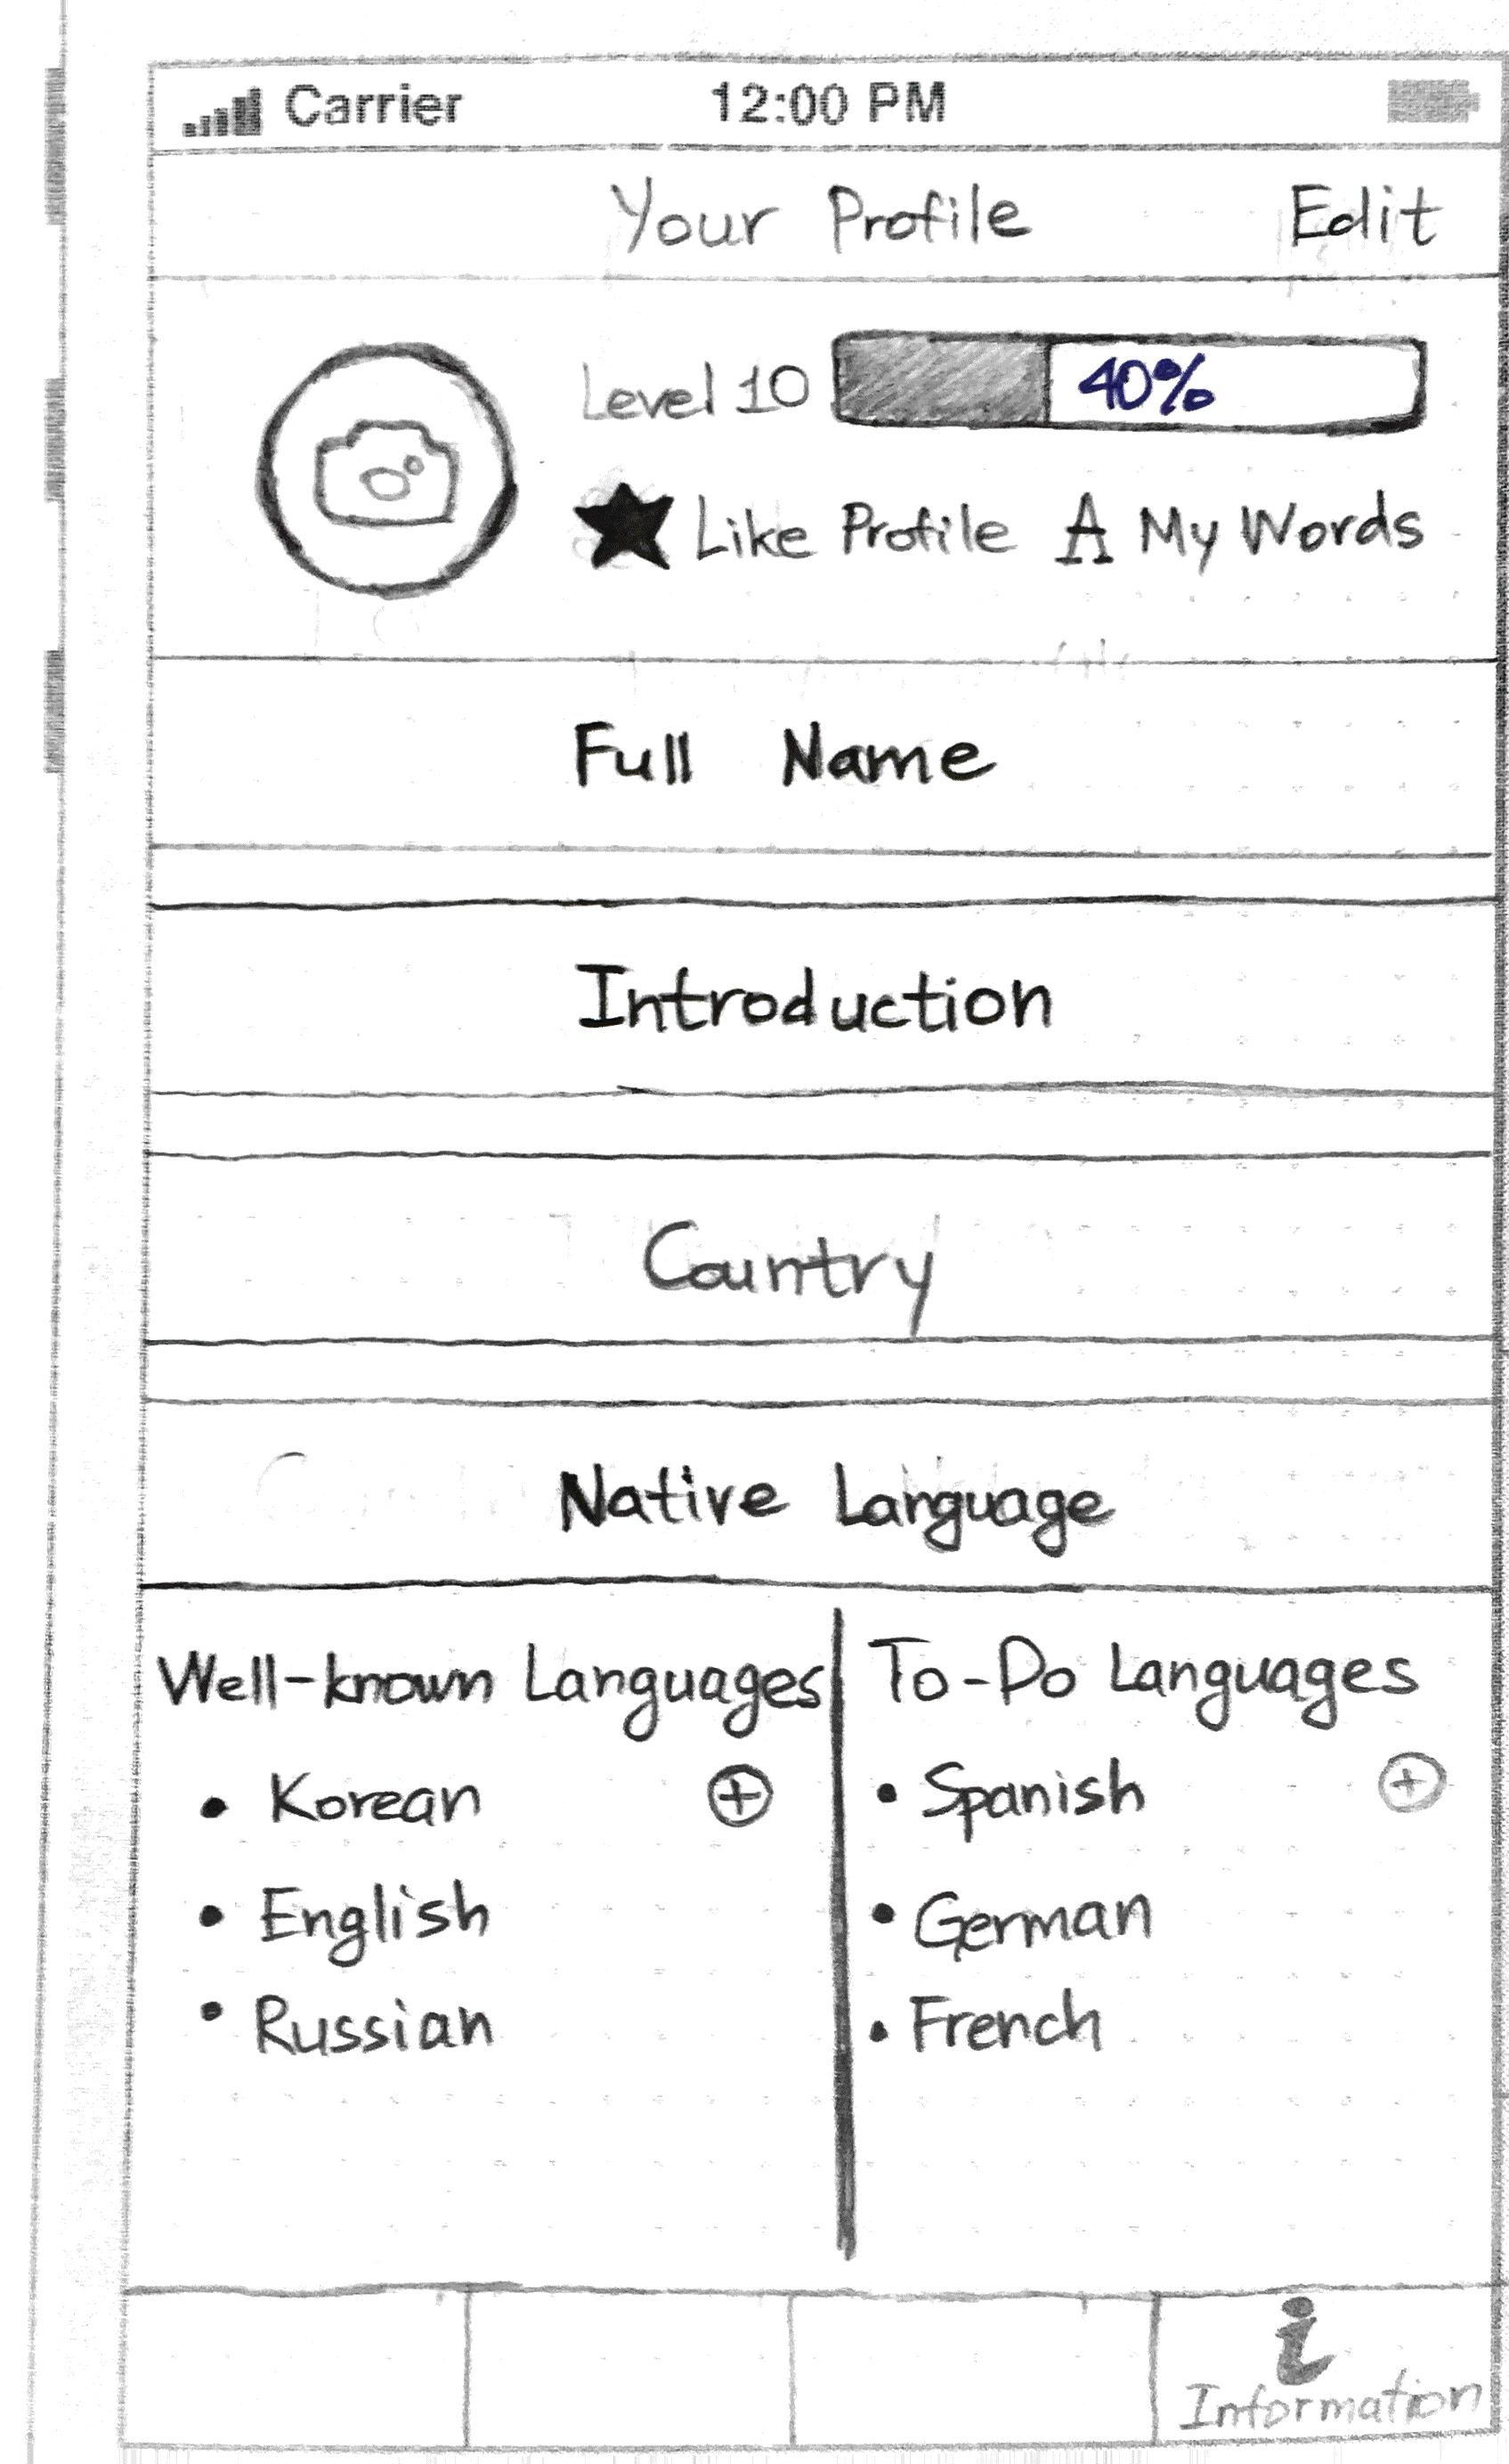 Carrier 12:00 PM
Your Profile Edit
Level 10 40%
Like Profile A My Words
Full Name
Introduction
Country
Native Language
Well-known Languages
Korean
English
Russian
To-Do Languages
Spanish
German
French
i
Information